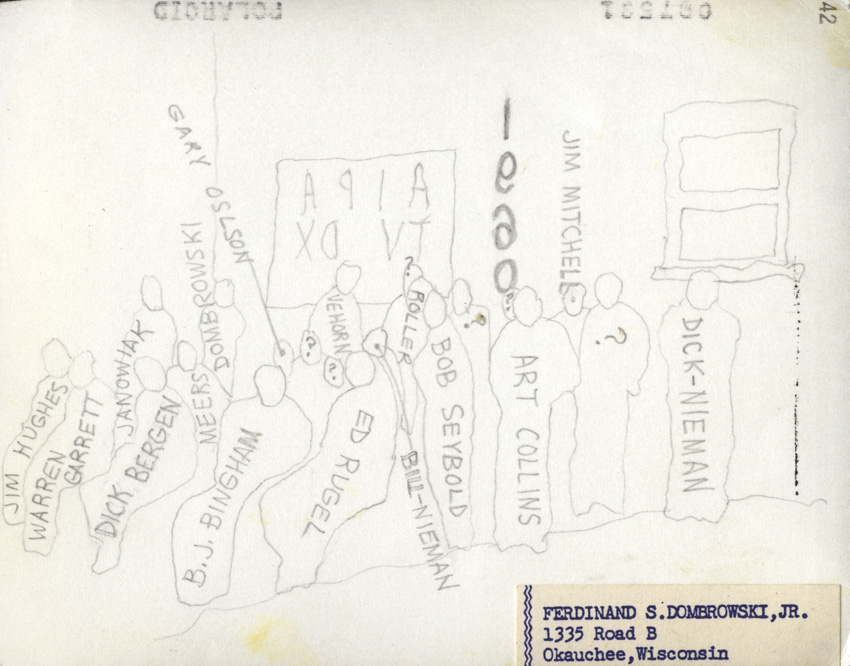 POLAROID
42
GARY OSLSON
1960
JIM MITCHELL
AIPA
TV DX
DOMBROWSKI
JANOWIAK
VEHORN
ROLLER
?
?
?
?
?
?
JIM HUGHES
WARREN GARRETT
DICK BERGEN
MEERS
B.J. BINGHAM
ED RUGEL
BILL-NIEMAN
BOB SEYBOLD
ART COLLINS
DICK-NIEMAN
FERDINAND S.DOMBROWSKI,JR.
1335 Road B
Okauchee,Wisconsin